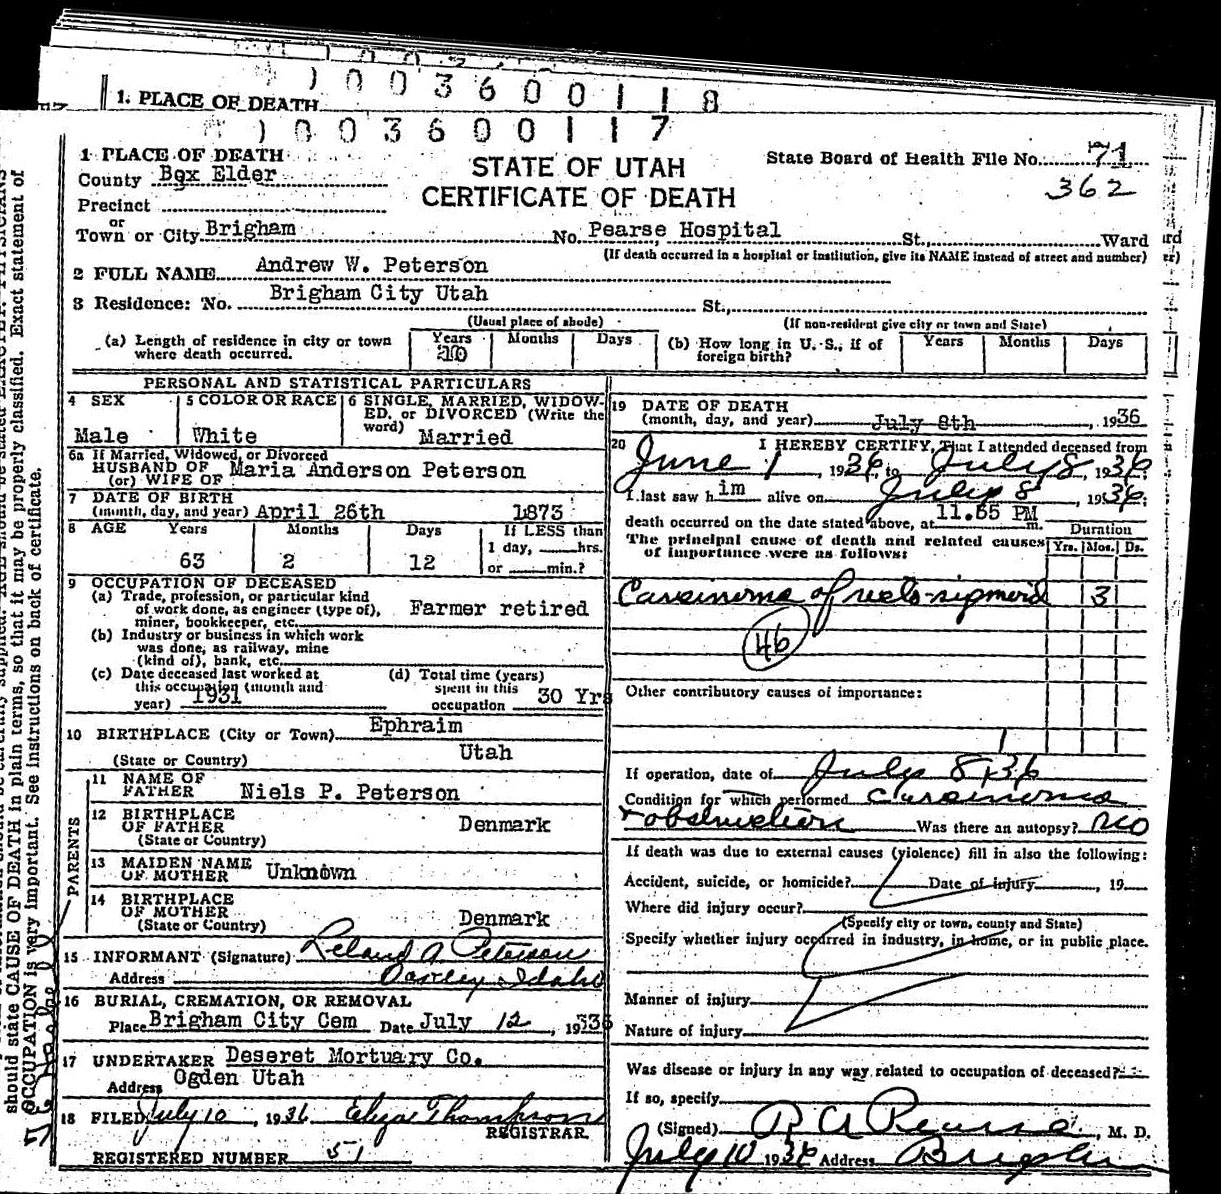 1 0 0 3 6 0 0 1 1 8
1. PLACE OF DEATH
1 0 0 3 6 0 0 1 1 7
1 PLACE OF DEATH
STATE OF UTAH
CERTIFICATE OF DEATH
State Board of Health File No. 71
362
County Box Elder
Precinct
or
Town or City Brigham No. Pearse Hospital St., Ward
(If death occurred in a hospital or institution, give its NAME instead of street and number)
2 FULL NAME Andrew W. Peterson
3 Residence: No. Brigham City Utah St.,
(Usual place of abode) (If non-resident give city or town and State)
(a) Length of residence in city or town where death occurred. Years Months Days
(b) How long in U. S., if of foreign birth? Years Months Days
PERSONAL AND STATISTICAL PARTICULARS
4 SEX Male
5 COLOR OR RACE White
6 SINGLE, MARRIED, WIDOWED, or DIVORCED (Write the word) Married
6a If Married, Widowed, or Divorced
HUSBAND OF (or) WIFE OF Maria Anderson Peterson
7 DATE OF BIRTH
(month, day, and year) April 26th 1873
8 AGE Years Months Days If LESS than
63 2 12 1 day, hrs. or min.?
9 OCCUPATION OF DECEASED
(a) Trade, profession, or particular kind of work done, as engineer (type of), miner, bookkeeper, etc. Farmer retired
(b) Industry or business in which work was done, as railway, mine (kind of), bank, etc.
(c) Date deceased last worked at this occupation (month and year) 1931
(d) Total time (years) spent in this occupation 30 Yrs
10 BIRTHPLACE (City or Town) Ephraim
(State or Country) Utah
PARENTS
11 NAME OF FATHER Niels P. Peterson
12 BIRTHPLACE OF FATHER (State or Country) Denmark
13 MAIDEN NAME OF MOTHER Unknown
14 BIRTHPLACE OF MOTHER (State or Country) Denmark
15 INFORMANT (Signature) Leland A Peterson
Address Oakley, Idaho
16 BURIAL, CREMATION, OR REMOVAL
Place Brigham City Cem Date July 12, 1936
17 UNDERTAKER Deseret Mortuary Co.
Address Ogden Utah
18 FILED July 10, 1936 Eliza Thompson
REGISTRAR.
REGISTERED NUMBER 51
19 DATE OF DEATH
(month, day, and year) July 8th, 1936
20 I HEREBY CERTIFY, That I attended deceased from
June 1, 1936, to July 8, 1936.
I last saw him alive on July 8, 1936.
death occurred on the date stated above, at 11.55 PM m.
The principal cause of death and related causes of importance were as follows:
Duration
Yrs. Mos. Ds.
Carcinoma of recto-sigmoid 3
46
Other contributory causes of importance:
If operation, date of July 8, 36
Condition for which performed Carcinoma
+ obstruction Was there an autopsy? no
If death was due to external causes (violence) fill in also the following:
Accident, suicide, or homicide? Date of injury, 19
Where did injury occur?
(Specify city or town, county and State)
Specify whether injury occurred in industry, in home, or in public place.
Manner of injury
Nature of injury
Was disease or injury in any way related to occupation of deceased?
If so, specify
(Signed) R A Pearse, M. D.
July 10 1936 Address Brigham
should state CAUSE OF DEATH in plain terms, so that it may be properly classified. Exact statement of
OCCUPATION is very important. See instructions on back of certificate.